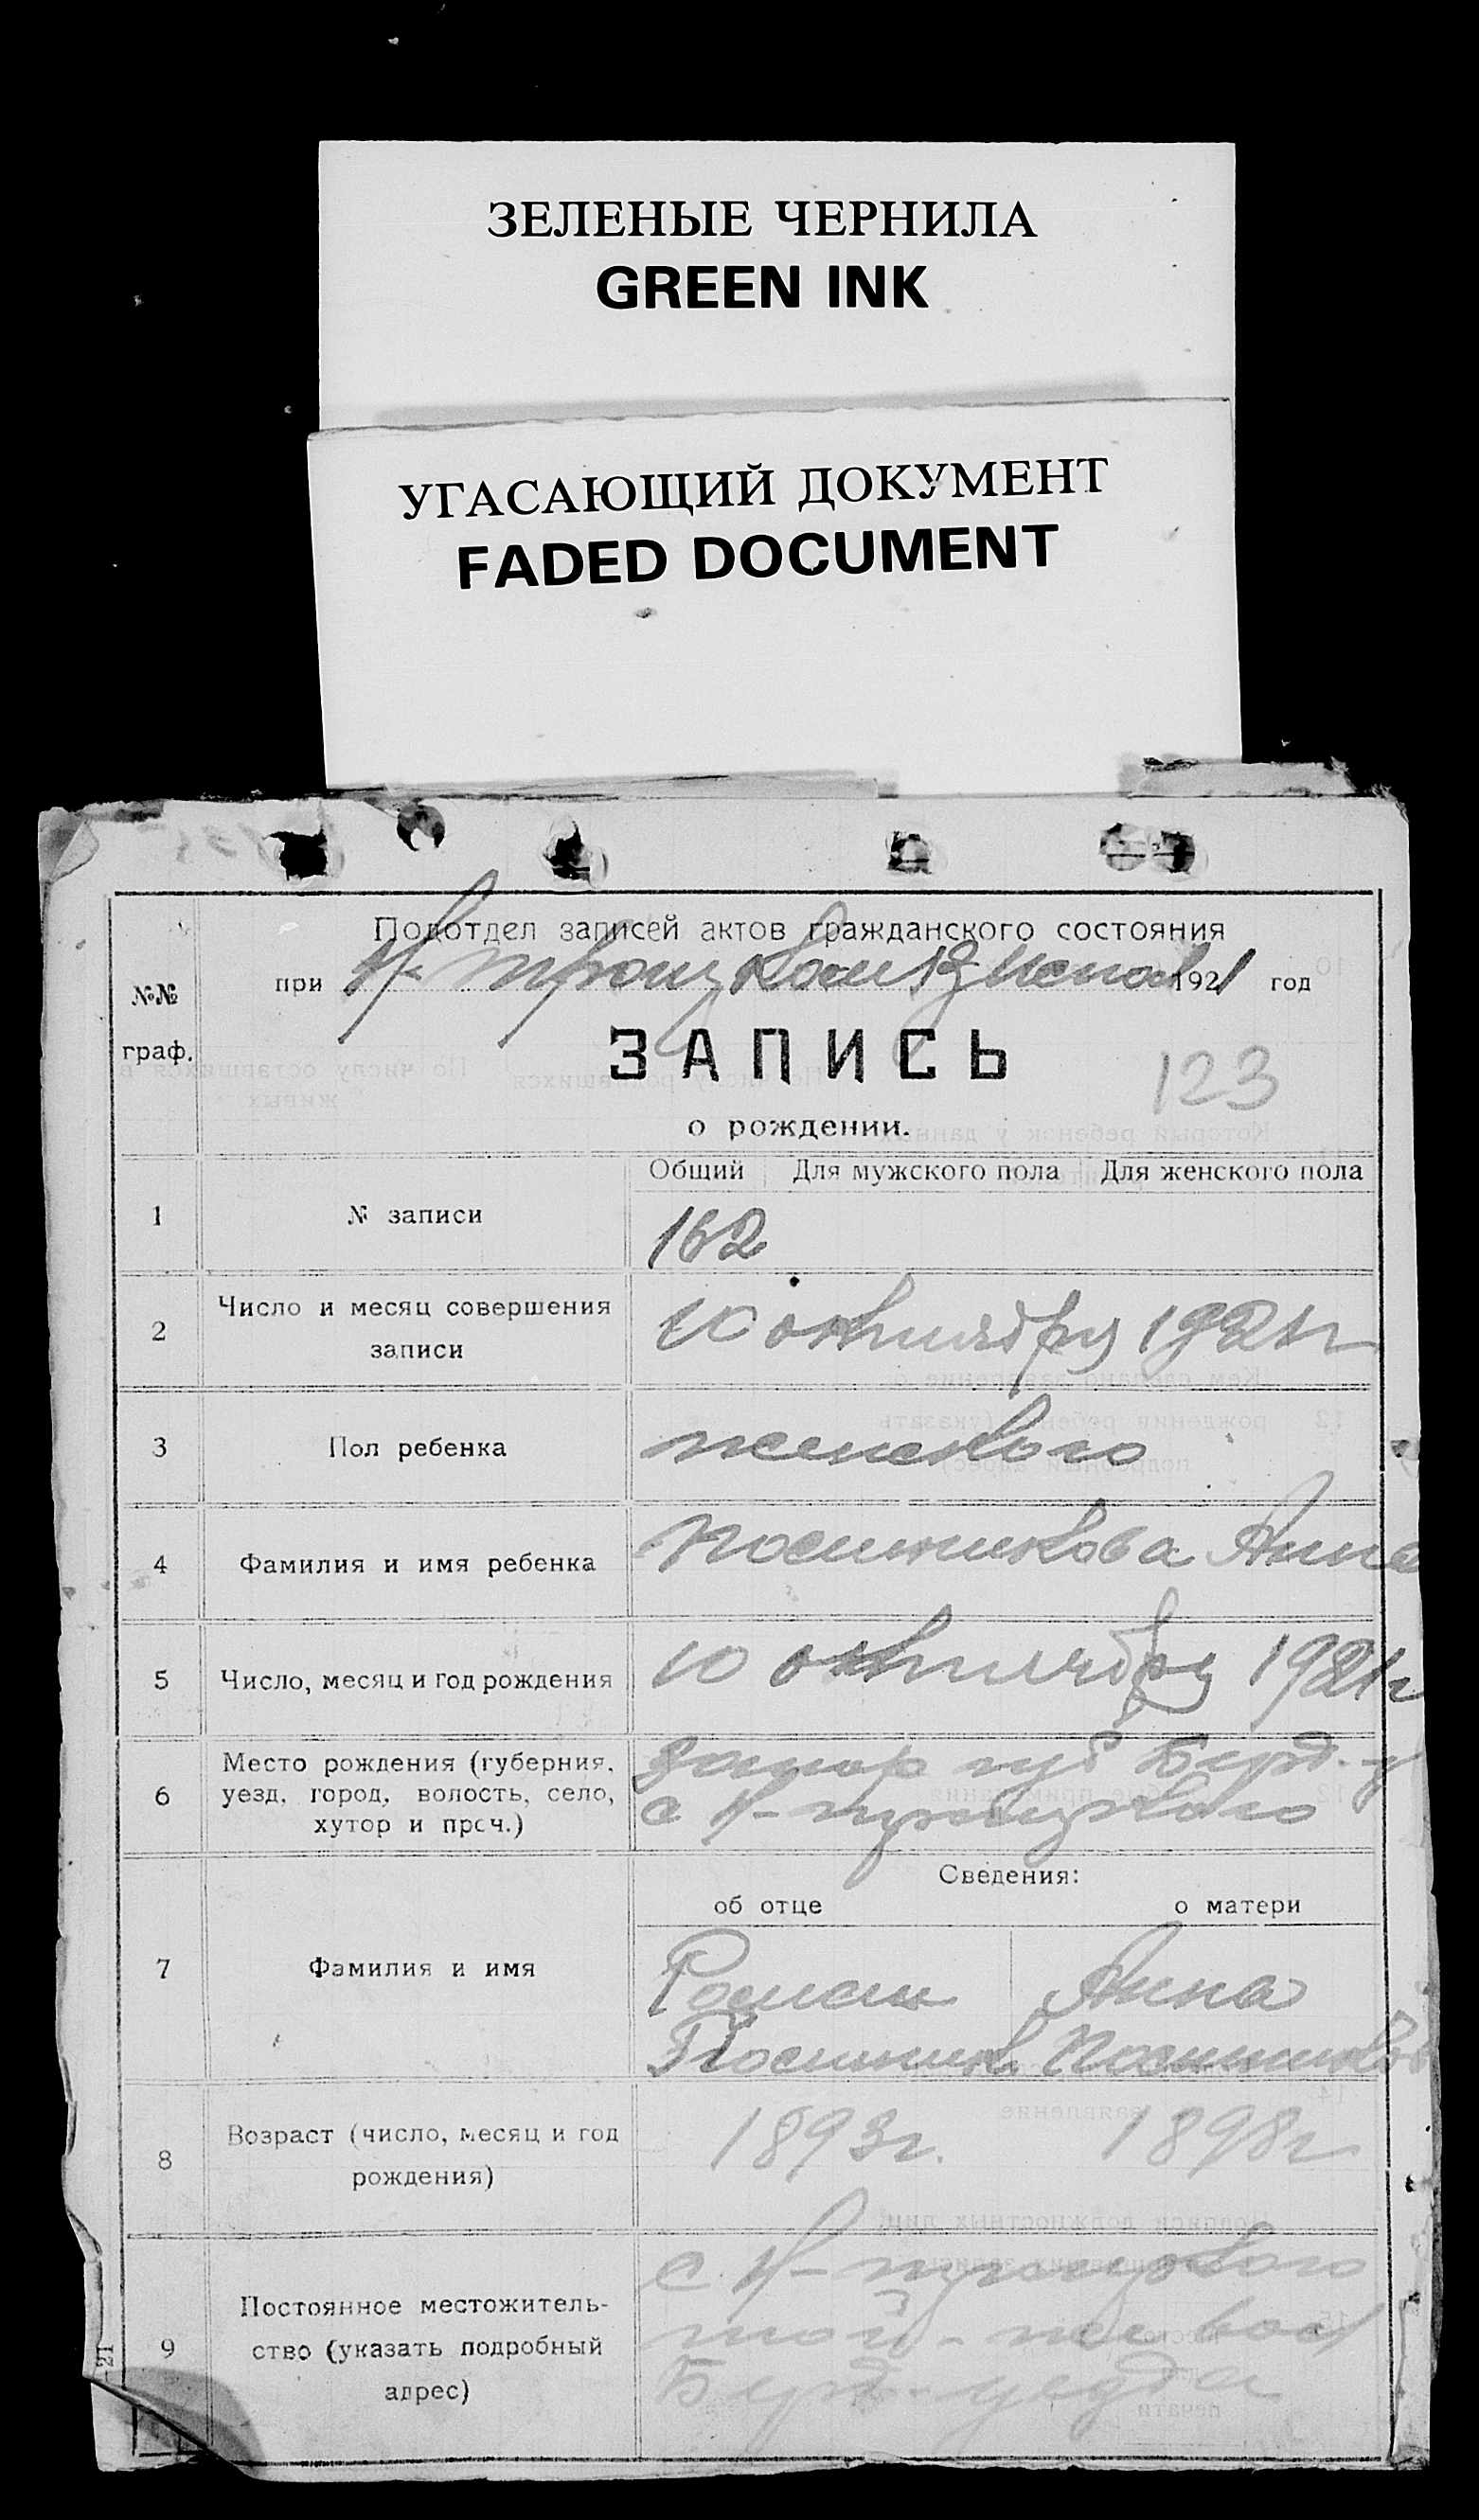 ЗЕЛЕНЫЕ ЧЕРНИЛА
GREEN INK
УГАСАЮЩИЙ ДОКУМЕНТ
FADED DOCUMENT
Подотдел записей актов гражданского состояния
№№ граф.
при Н-Троицком 1921 год
ЗАПИСЬ
123
о рождении.
Общий Для мужского пола Для женского пола
1 № записи 162
2 Число и месяц совершения записи 10 октября 1921 г
3 Пол ребенка женского
4 Фамилия и имя ребенка Анна
5 Число, месяц и год рождения 10 октября 1921 г
6 Место рождения (губерния, уезд, город, волость, село, хутор и проч.)
Запор губ Берд. у
с Н-Троицкого
Сведения:
об отце о матери
7 Фамилия и имя
Роман Анна
8 Возраст (число, месяц и год рождения) 1893 г. 1898 г
9 Постоянное местожительство (указать подробный адрес)
с. Н-Троицкого
той-же вол
Берд. уезда
21